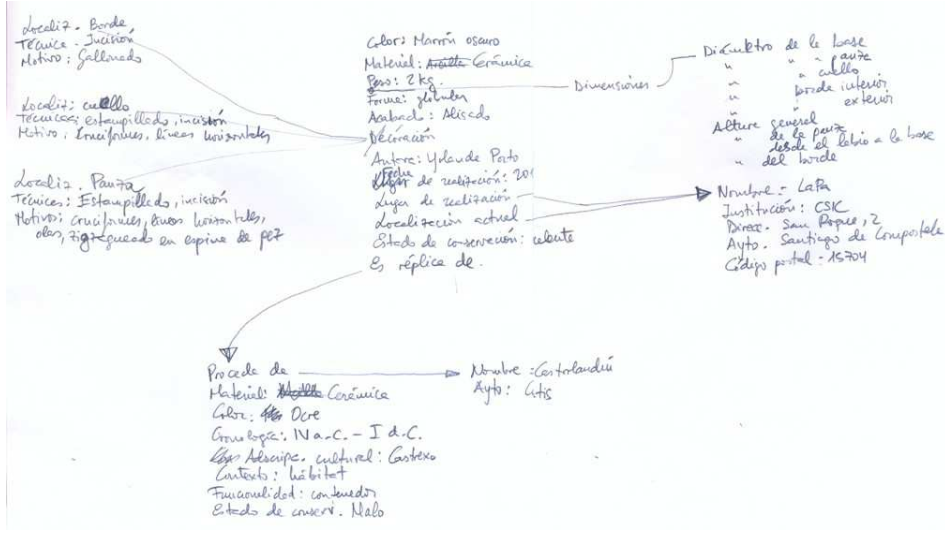 Localiz. Borde
Técnica. Incisión
Motivo: Gallonado
Localiz: cuello
Técnicas: estampillado, incisión
Motivo: Cruciformes, líneas horizontales
Localiz. Panza
Técnicas: Estampillado, incisión
Motivos: cruciformes, líneas horizontales,
olas, zigzagueado en espina de pez
Color: Marrón oscuro
Material: Arcilla Cerámica
Peso: 2 kg.
Forma: globular
Acabado: Alisado
Decoración
Autora: Yolanda Porto
Fecha de realización: 201
Lugar de realización
Localización actual
Estado de conservación:
Es réplica de.
Dimensiones
Diámetro de la base
" " panza
" " cuello
" borde interior
" exterior
Altura general
" de la panza
" desde el labio a la base
" del borde
Nombre - LaPa
Institución: CSIC
Direcc. San Roque, 2
Ayto. Santiago de Compostela
Código postal: 15704
Procede de
Material: Arcilla Cerámica
Color: Ocre
Cronología: IV a.C. - I d.C.
Adscripc. cultural: Castrexo
Contexto: hábitat
Funcionalidad: contenedor
Estado de conserv. Malo
Nombre: Castrolandín
Ayto: Cutis